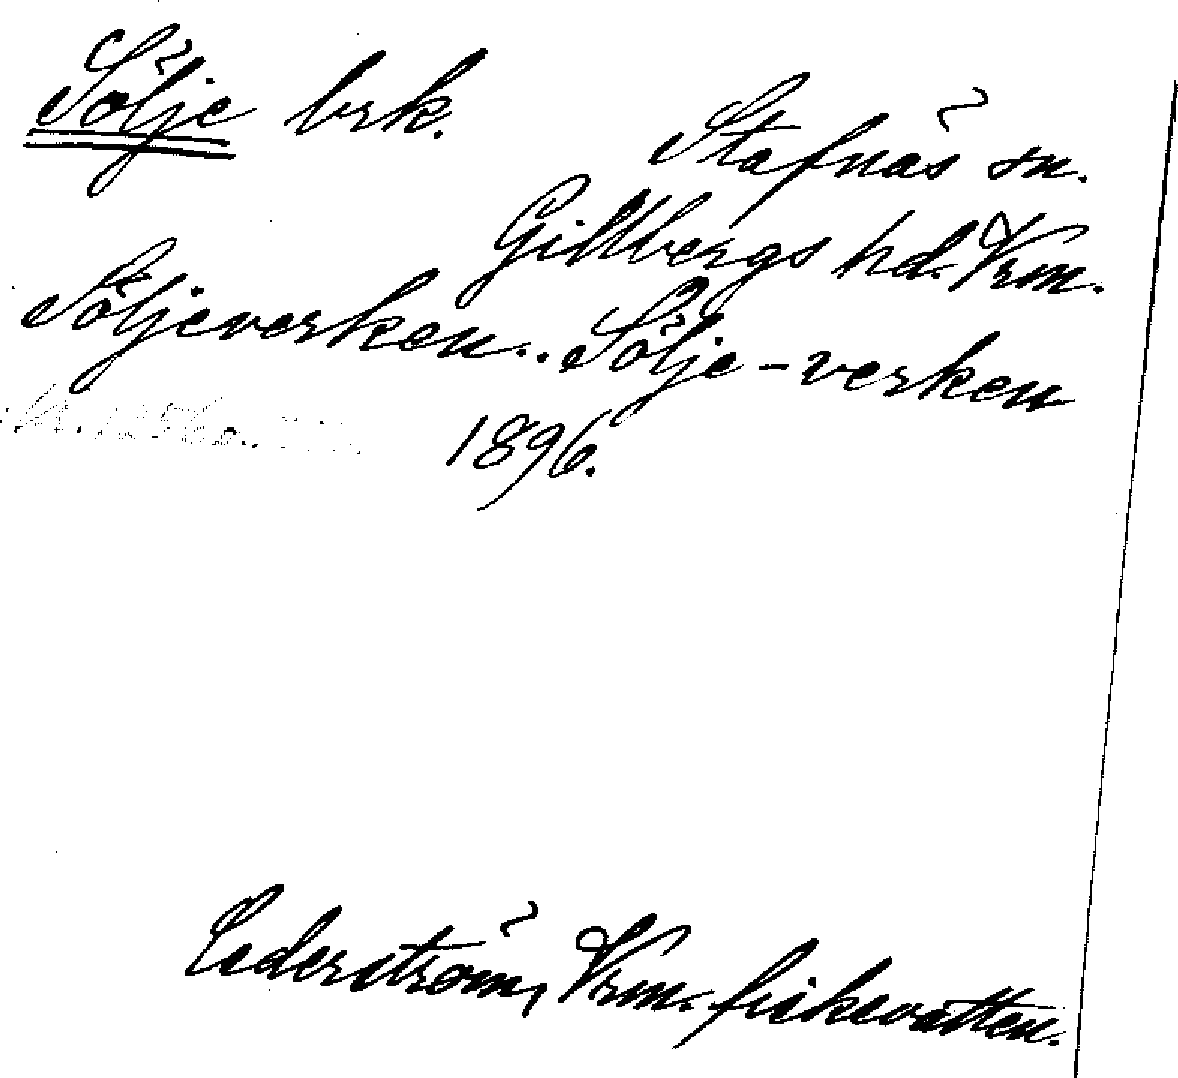 Sölje brk.
Stafnäs sn.
Gillbergs hd. Vrm.
Söljeverken.. Sölje-verken
1896.
Cederström, Vrm. fiskevatten.